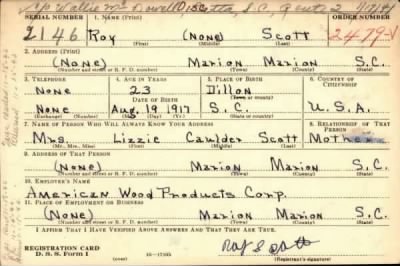 c/o Wallie Mc Dowell, S.C. Route 2
SERIAL NUMBER 1. NAME (Print) ORDER NUMBER
2146 Roy (None) Scott 2479-V
(First) (Middle) (Last)
2. ADDRESS (Print)
(None) Marion Marion S.C.
(Number and street or R. F. D. number) (Town) (County) (State)
3. TELEPHONE 4. AGE IN YEARS 5. PLACE OF BIRTH 6. COUNTRY OF CITIZENSHIP
None 23 Dillon
DATE OF BIRTH (Town or county)
None Aug. 19 1917 S.C. U.S.A.
(Exchange) (Number) (Mo.) (Day) (Yr.) (State or country)
7. NAME OF PERSON WHO WILL ALWAYS KNOW YOUR ADDRESS 8. RELATIONSHIP OF THAT PERSON
Mrs. Lizzie Caulder Scott Mother
(Mr., Mrs., Miss) (First) (Middle) (Last)
9. ADDRESS OF THAT PERSON
(None) Marion Marion S.C.
(Number and street or R. F. D. number) (Town) (County) (State)
10. EMPLOYER'S NAME
American Wood Products Corp.
11. PLACE OF EMPLOYMENT OR BUSINESS
(None) Marion Marion S.C.
(Number and street or R. F. D. number) (Town) (County) (State)
I AFFIRM THAT I HAVE VERIFIED ABOVE ANSWERS AND THAT THEY ARE TRUE.
REGISTRATION CARD
D. S. S. Form 1 16—17105 Roy Scott